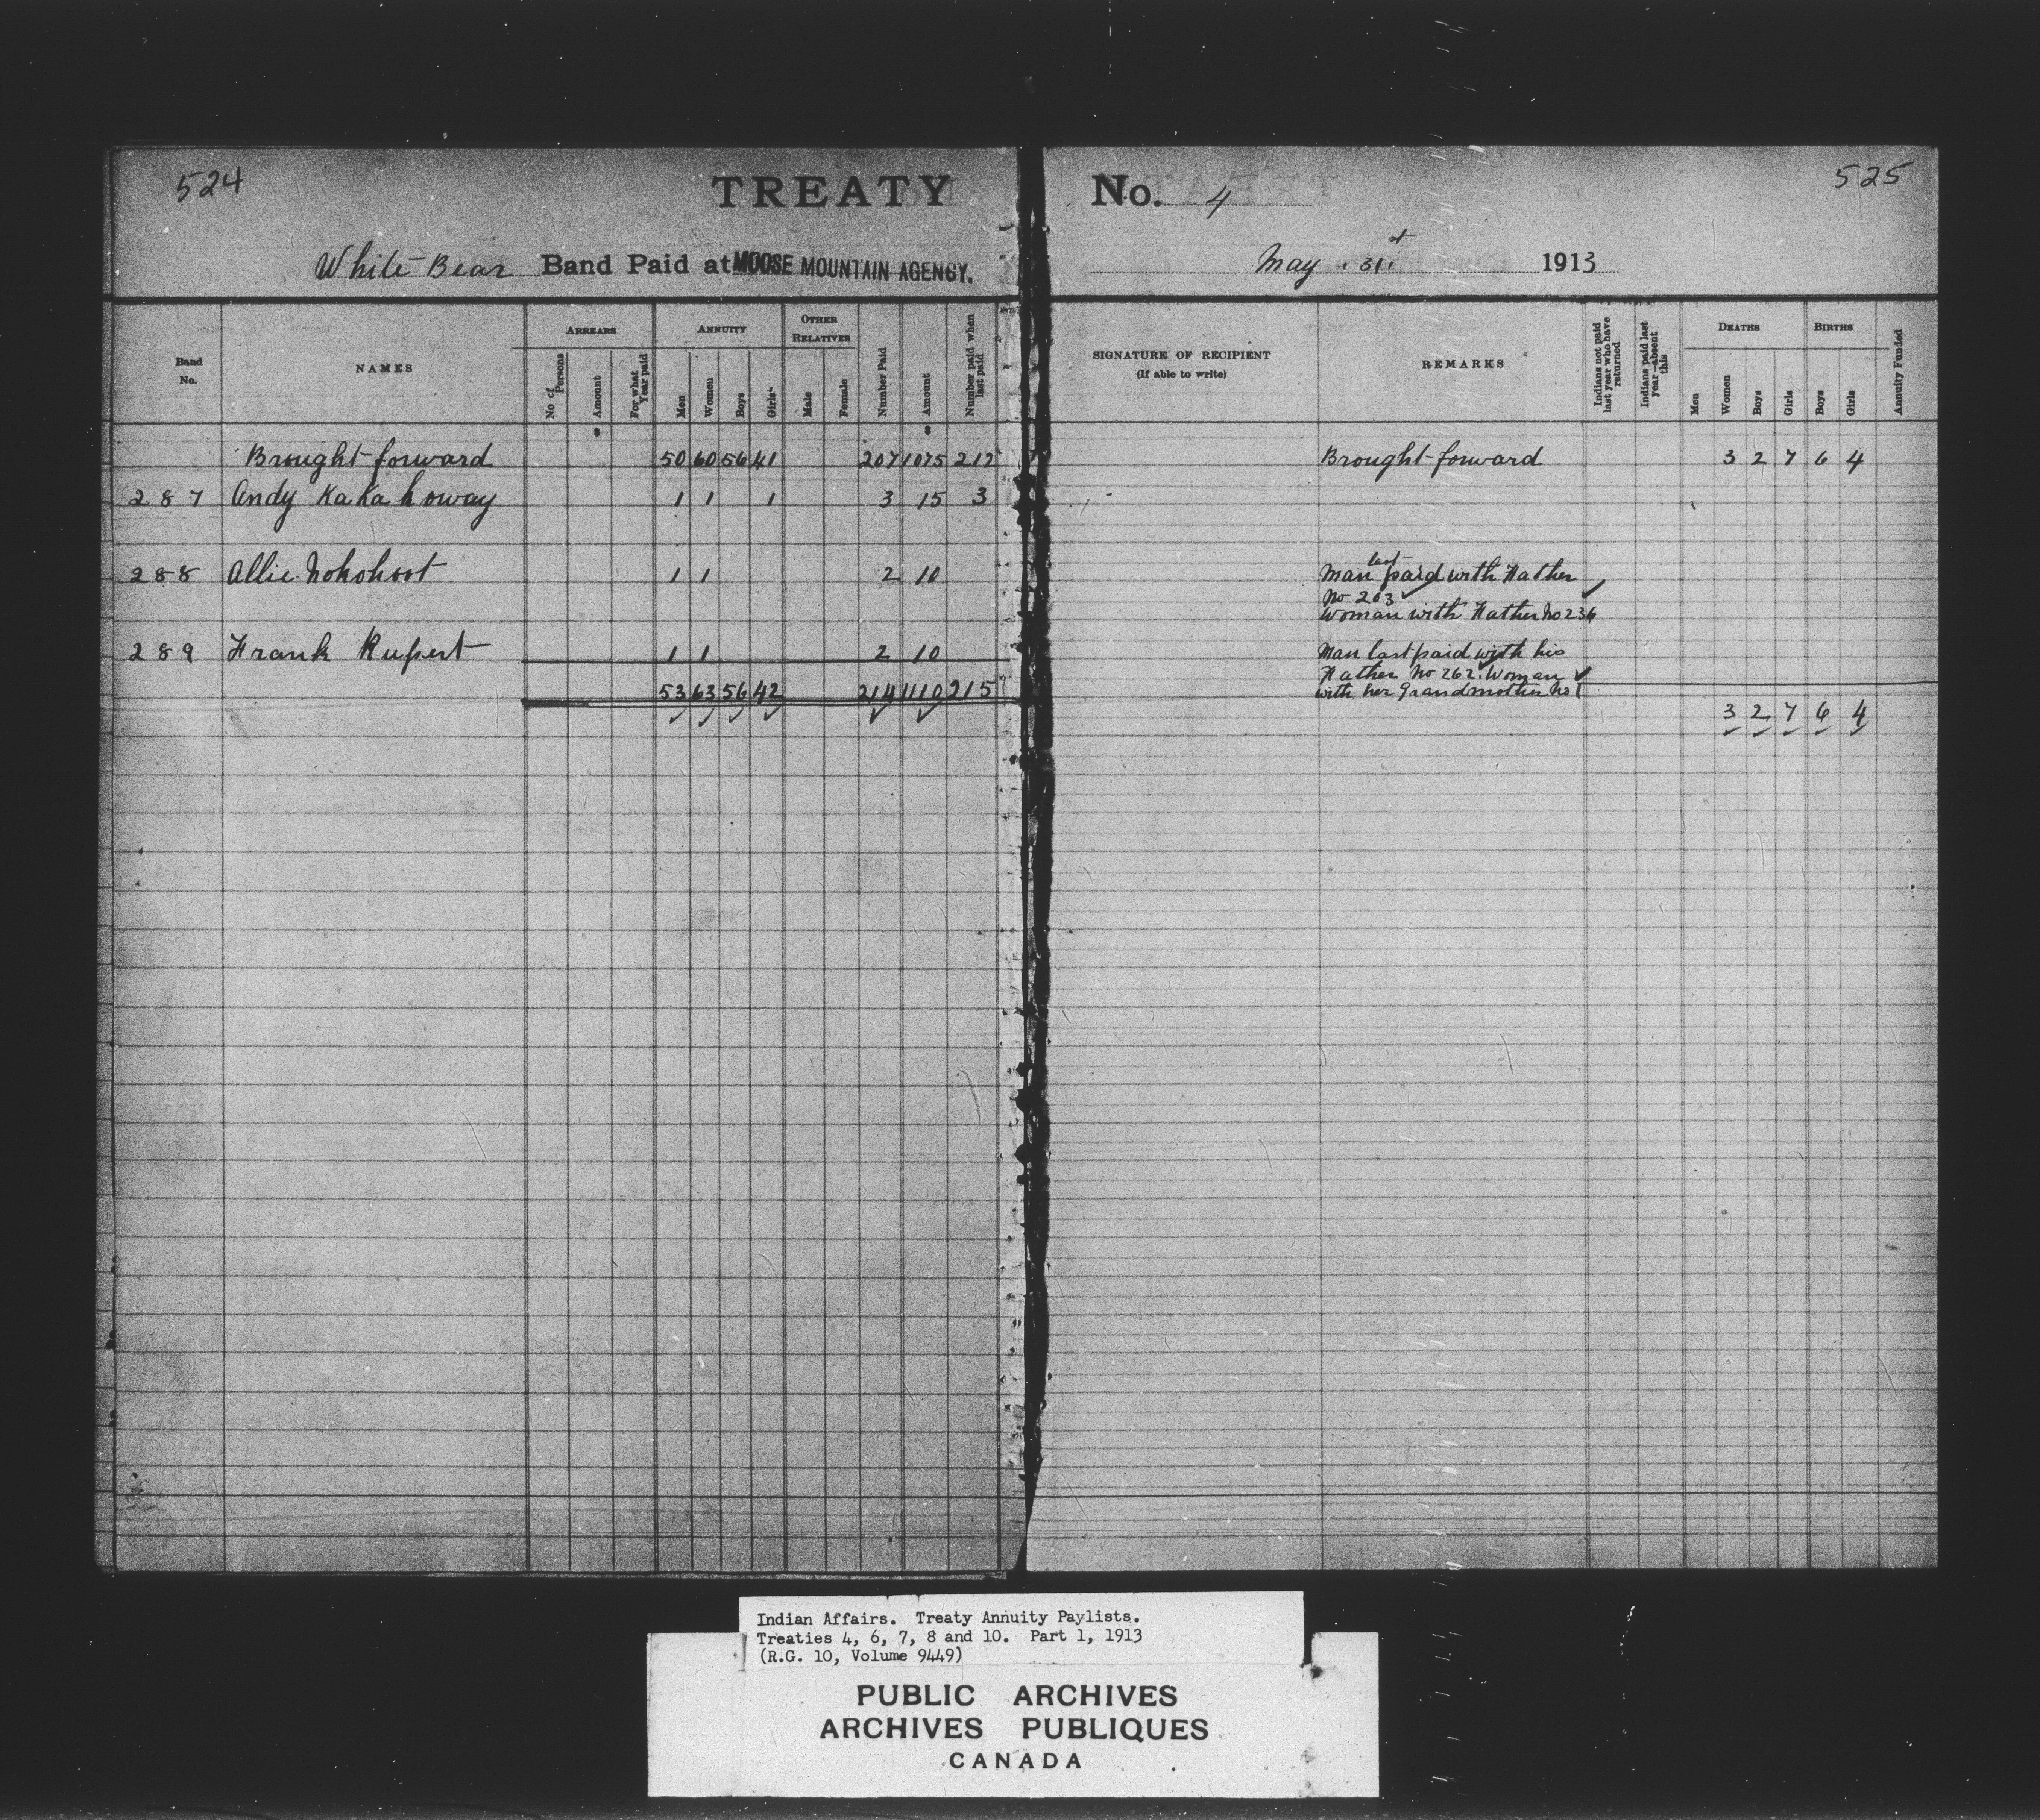 524
TREATY No. 4
525
White Bear Band Paid at MOOSE MOUNTAIN AGENCY.
May 31st 1913
Band No.
NAMES
ARREARS
No of Persons
Amount
For what Year paid
ANNUITY
Men
Women
Boys
Girls
OTHER RELATIVES
Male
Female
Number Paid
Amount
Number paid when last paid
SIGNATURE OF RECIPIENT
(If able to write)
REMARKS
Indians not paid last year who have returned
Indians paid last year—absent this
DEATHS
Men
Women
Boys
Girls
BIRTHS
Boys
Girls
Annuity Funded
$ $
Brought forward 50 60 56 41 207 1075 212 Brought forward 3 2 7 6 4
287 Andy KaKa howay 1 1 1 3 15 3
288 Allie Nokohoot 1 1 2 10 Man last paid with Father
No 203
Woman with Father No 236
289 Frank Rupert 1 1 2 10 Man last paid with his
Father No 262. Woman
with her Grandmother No 1
53 63 56 42 214 1110 215
3 2 7 6 4
Indian Affairs. Treaty Annuity Paylists.
Treaties 4, 6, 7, 8 and 10. Part 1, 1913
(R.G. 10, Volume 9449)
PUBLIC ARCHIVES
ARCHIVES PUBLIQUES
CANADA